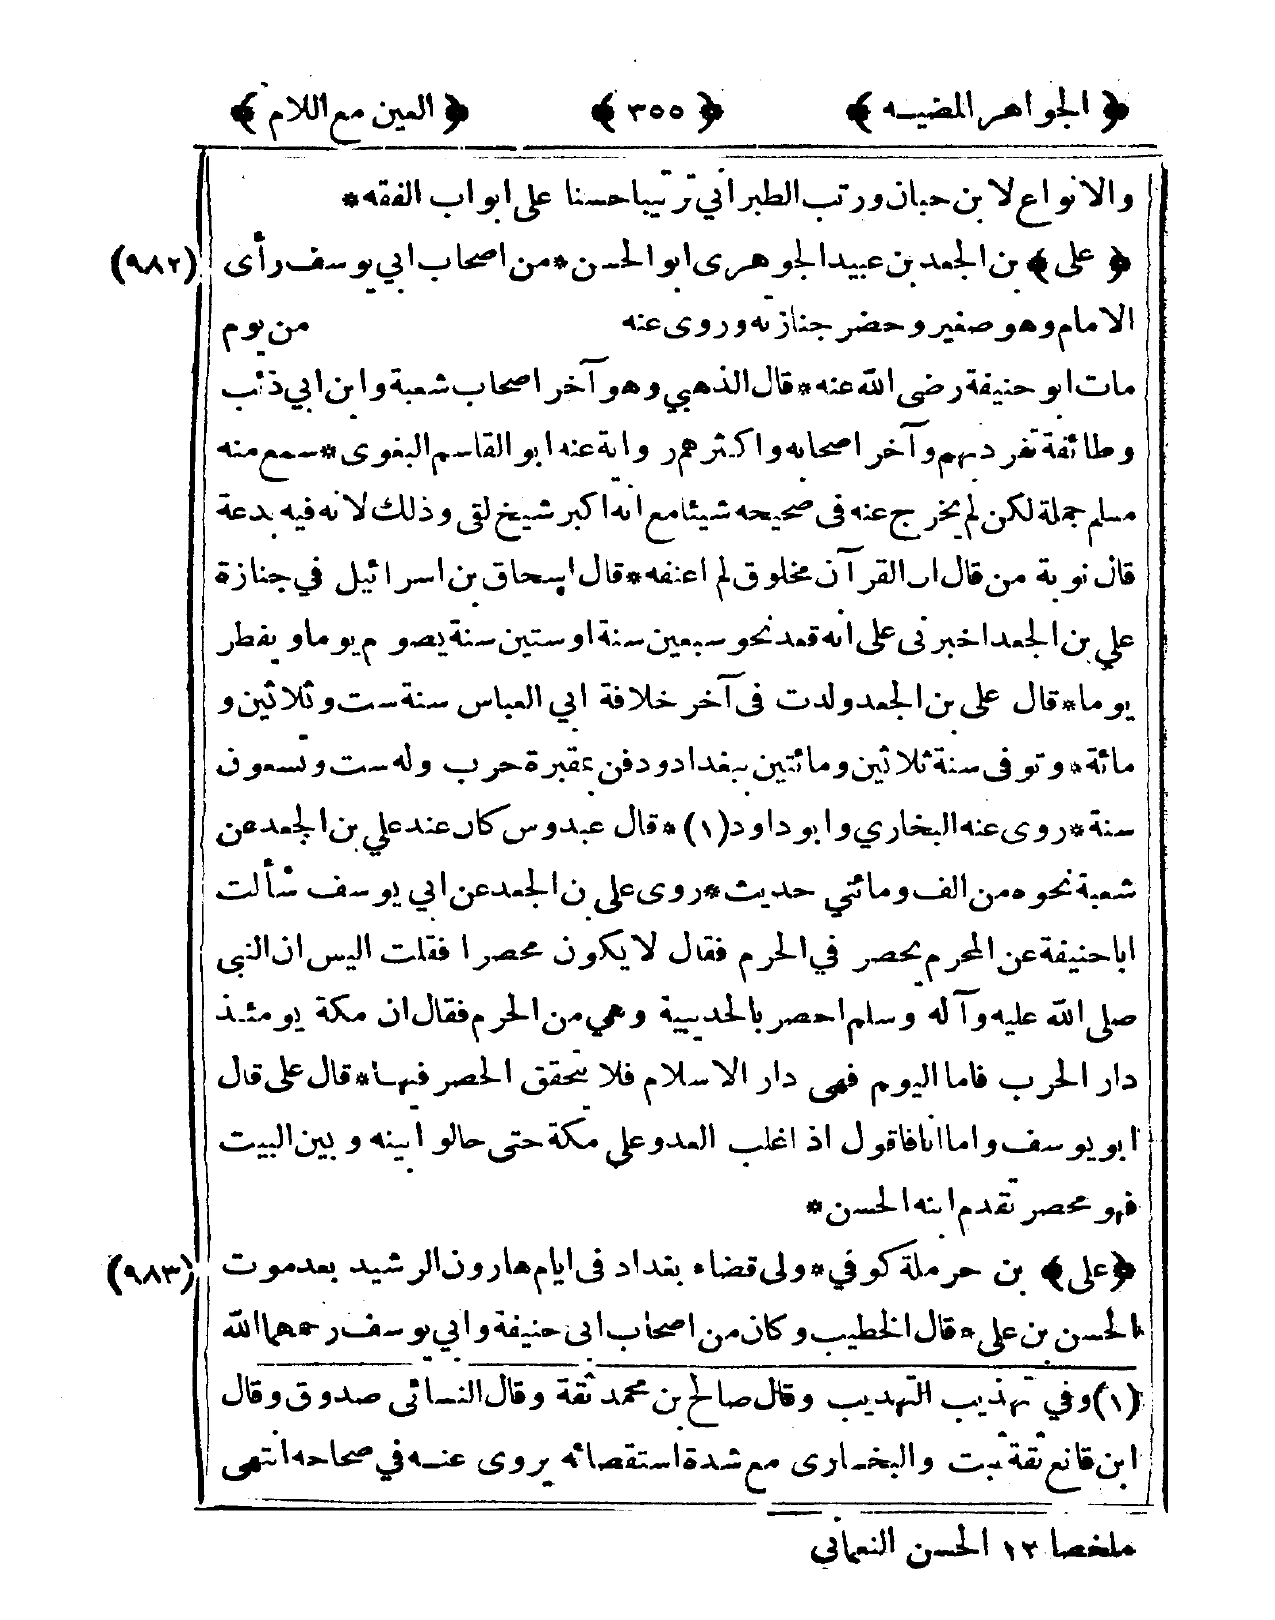 ﴿ الجواهر المضيه ﴾ ﴿ ٣٥٥ ﴾ ﴿ العين مع اللام ﴾
والانواع لابن حبان ورتب الطبراني ترتيبا حسنا على ابواب الفقه *
﴿ على ﴾ بن الجعد بن عبيد الجوهرى ابو الحسن * من اصحاب ابي يوسف رأى (٩٨٢)
الامام وهو صغير وحضر جنازته وروى عنه من يوم
مات ابو حنيفة رضى الله عنه * قال الذهبي وهو آخر اصحاب شعبة وابن ابي ذئب
وطائفة تفرد بهم وآخر اصحابه واكثرهم رواية عنه ابو القاسم البغوى * سمع منه
مسلم جملة لكن لم يخرج عنه فى صحيحه شيئا مع انه اكبر شيخ لقى وذلك لانه فيه بدعة
قال نوبة من قال ان القرآن مخلوق لم اعنفه * قال اسحاق بن اسرائيل في جنازة
علي بن الجعد اخبرنى على انه قعد نحو سبعين سنة او ستين سنة يصوم يوما ويفطر
يوما * قال على بن الجعد ولدت فى آخر خلافة ابي العباس سنة ست وثلاثين و
مائة * وتوفى سنة ثلاثين ومائتين ببغداد ودفن بمقبرة حرب وله ست وتسعون
سنة * روى عنه البخاري وابو داود (١) * قال عبدوس كان عند علي بن الجعد عن
شعبة نحوه من الف ومائتي حديث * روى على بن الجعد عن ابي يوسف سألت
ابا حنيفة عن المحرم يحصر في الحرم فقال لا يكون محصرا فقلت اليس ان النبى
صلى الله عليه وآله وسلم احصر بالحديبية وهي من الحرم فقال ان مكة يومئذ
دار الحرب فاما اليوم فهى دار الاسلام فلا يتحقق الحصر فيها * قال على قال
ابو يوسف واما انا فاقول اذا غلب العدو على مكة حتى حالوا بينه وبين البيت
فهو محصر تقدم ابنه الحسن *
﴿ على ﴾ بن حرملة كوفي * ولى قضاء بغداد فى ايام هارون الرشيد بعد موت (٩٨٣)
الحسن بن على * قال الخطيب وكان من اصحاب ابى حنيفة وابي يوسف رحمهما الله
(١) وفي تهذيب التهذيب وقال صالح بن محمد ثقة وقال النسائى صدوق وقال
ابن قانع ثقة ثبت والبخارى مع شدة استقصائه يروى عنه في صحاحه انتهى
ملخصا ١٢ الحسن النعماني